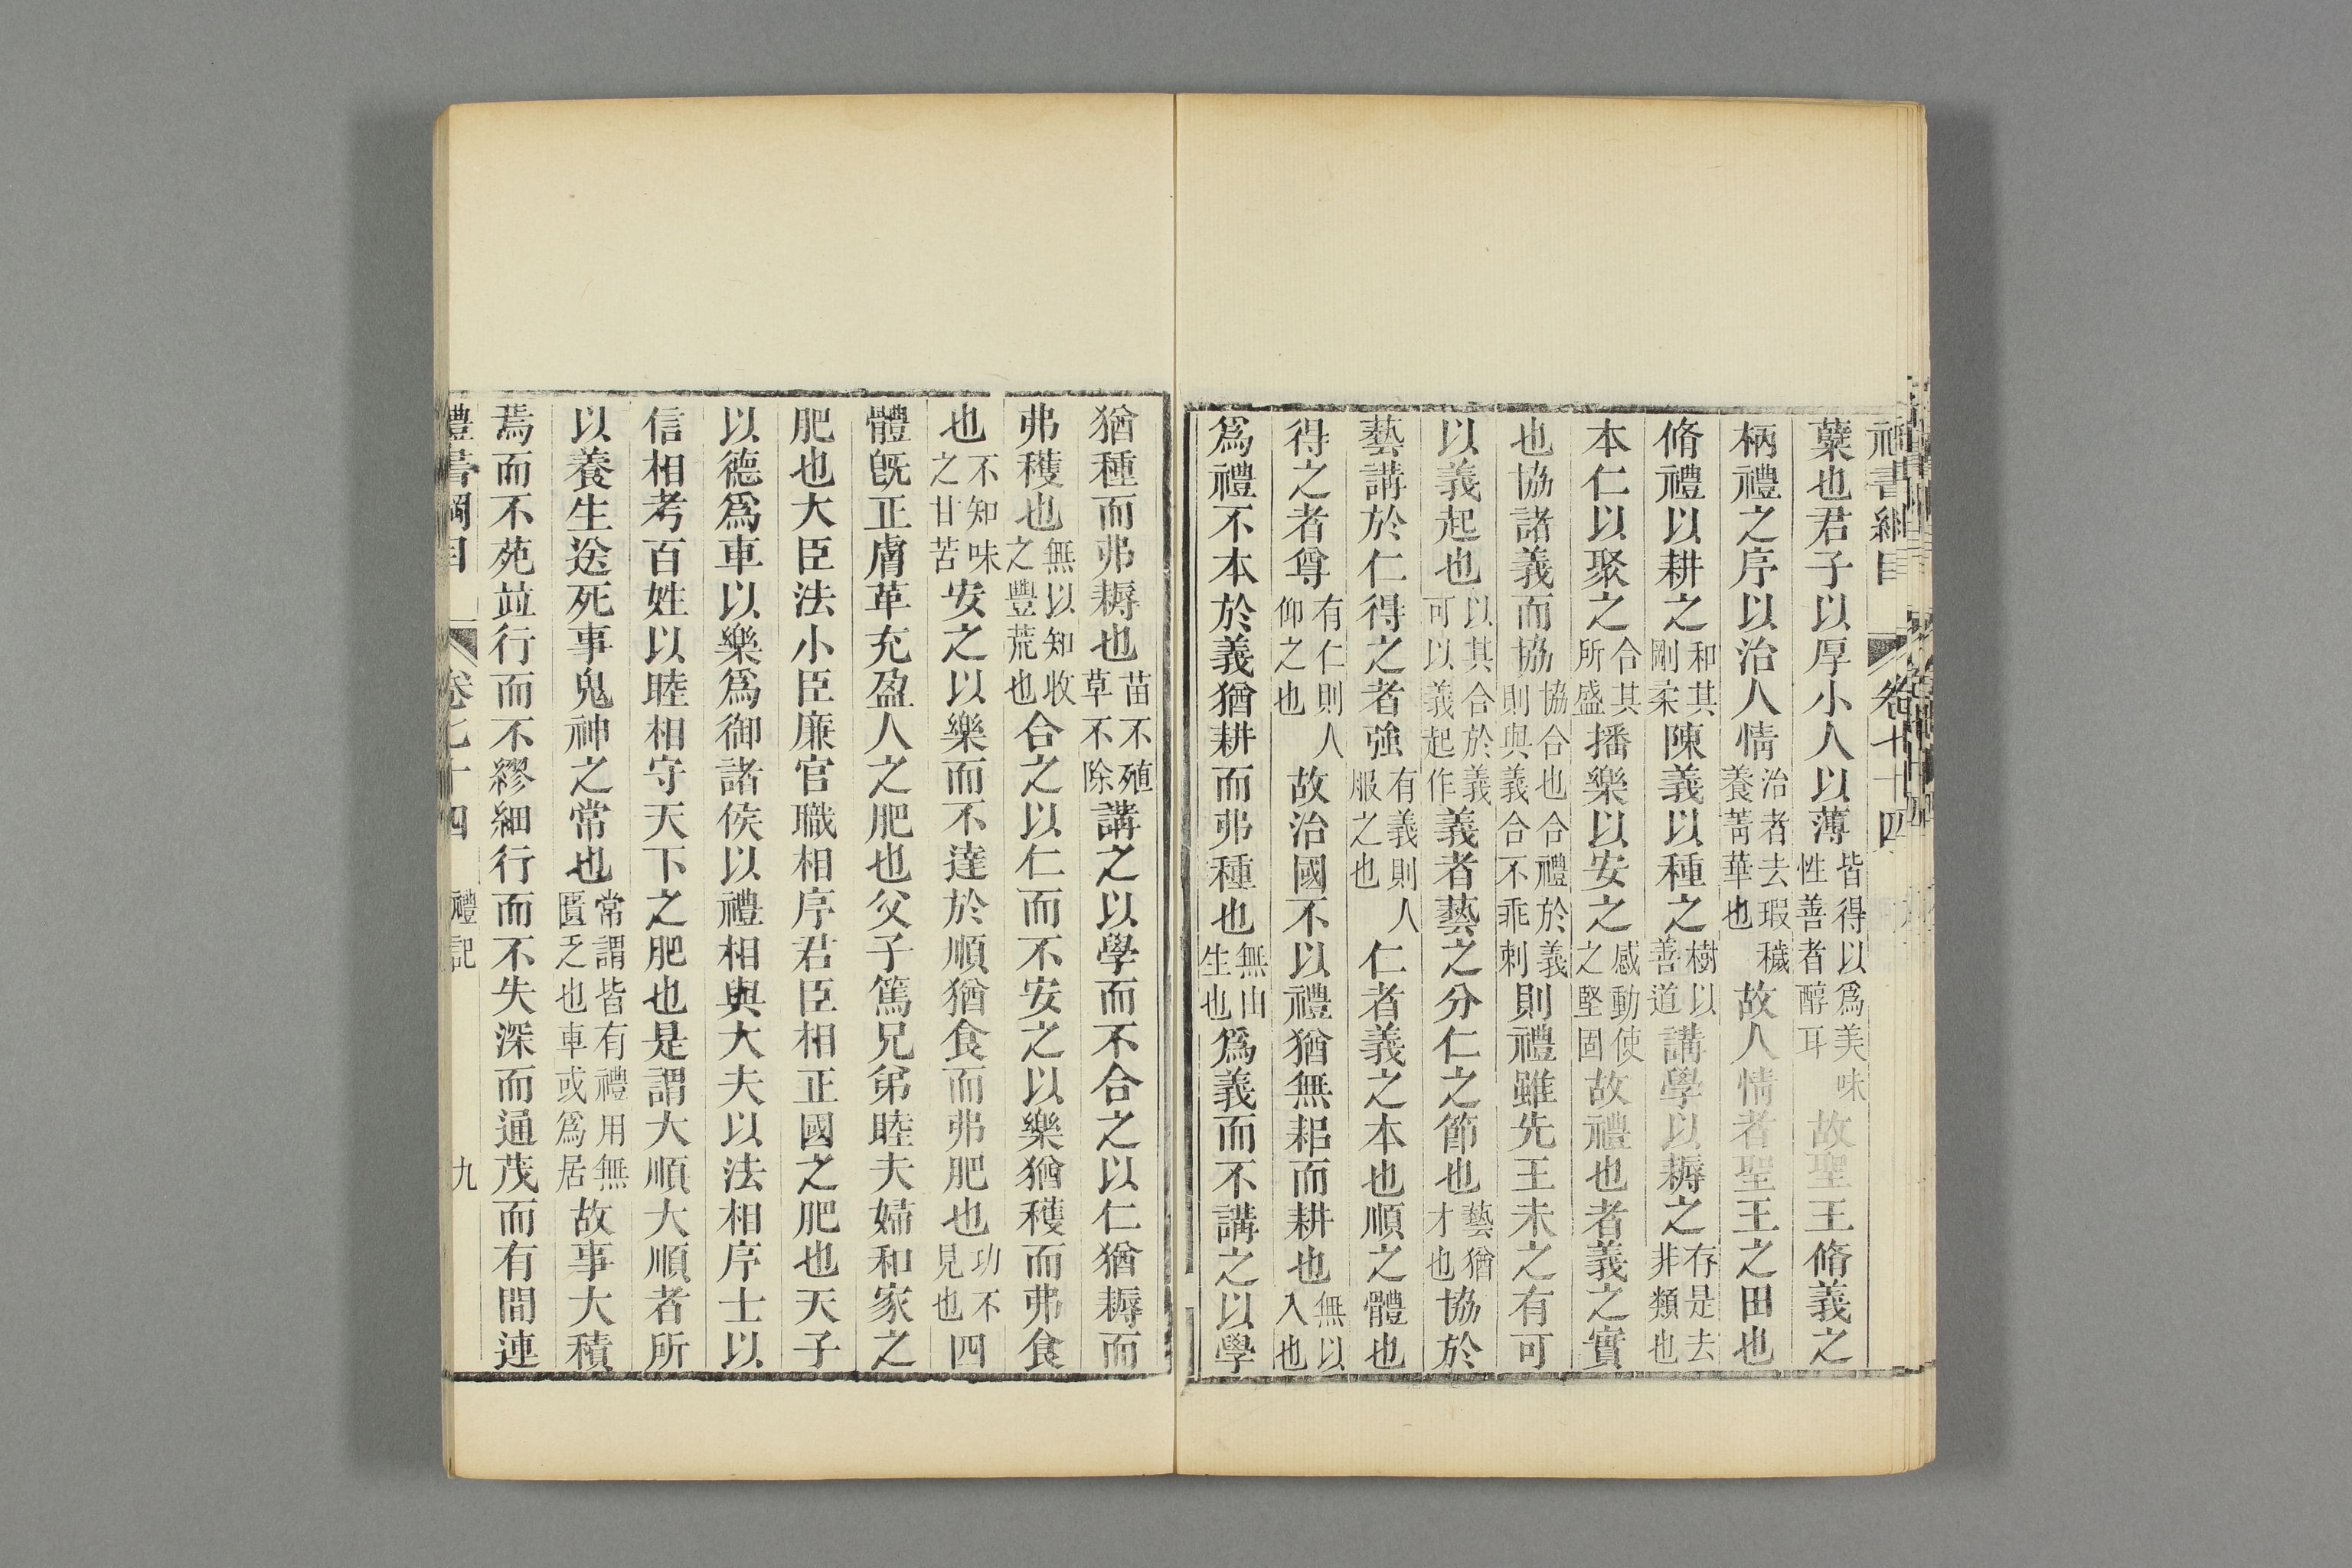 禮書綱目 卷七十四
蘖也君子以厚小人以薄皆得以爲美味性善者醇耳故聖王脩義之
柄禮之序以治人情治者去瑕穢養菁華也故人情者聖王之田也
脩禮以耕之和其剛柔陳義以種之樹以善道講學以耨之存是去非類也
本仁以聚之合其所盛播樂以安之感動使之堅固故禮也者義之實
也協諸義而協協合也合禮於義則與義合不乖剌則禮雖先王未之有可
以義起也以其合於義可以義起作義者藝之分仁之節也藝猶才也協於
藝講於仁得之者強有義則人服之也仁者義之本也順之體也
得之者尊有仁則人仰之也故治國不以禮猶無耜而耕也無以入也
爲禮不本於義猶耕而弗種也無由生也爲義而不講之以學
猶種而弗耨也苗不殖草不除講之以學而不合之以仁猶耨而
弗穫也無以知收之豐荒也合之以仁而不安之以樂猶穫而弗食
也不知味之甘苦安之以樂而不達於順猶食而弗肥也功不見也四
體旣正膚革充盈人之肥也父子篤兄弟睦夫婦和家之
肥也大臣法小臣廉官職相序君臣相正國之肥也天子
以德爲車以樂爲御諸侯以禮相與大夫以法相序士以
信相考百姓以睦相守天下之肥也是謂大順大順者所
以養生送死事鬼神之常也常謂皆有禮用無匱乏也車或爲居故事大積
焉而不苑竝行而不繆細行而不失深而通茂而有間連
禮書綱目 卷七十四 禮記 九